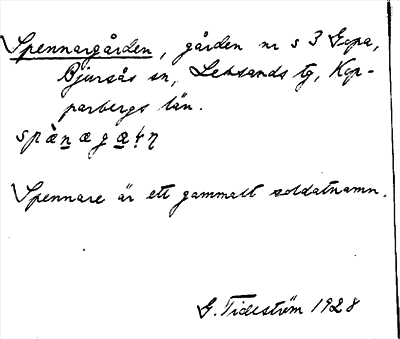 Spennargården, gården nr s 3 Gopa,
Bjursås sn, Leksands tg, Kop-
parbergs län.
spànægaṛṇ
Spennare är ett gammalt soldatnamn.
G. Tideström 1928